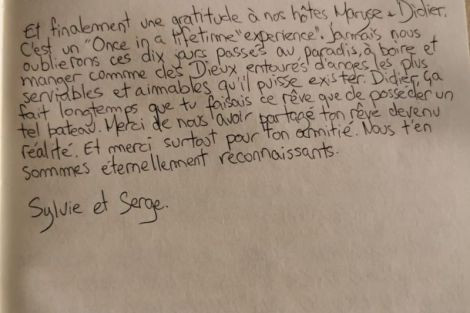 Et finalement une gratitude à nos hôtes Maryse & Didier.
C'est un "Once in a lifetime "experience". Jamais nous
oublierons ces dix jours passés au paradis, à boire et
manger comme des Dieux entourés d'anges les plus
serviables et aimables qu'il puisse exister. Didier, ça
fait longtemps que tu faisais ce rêve que de posséder un
tel bateau. Merci de nous avoir partagé ton rêve devenu
réalité. Et merci surtout pour ton amitié. Nous t'en
sommes éternellement reconnaissants.
Sylvie et Serge.